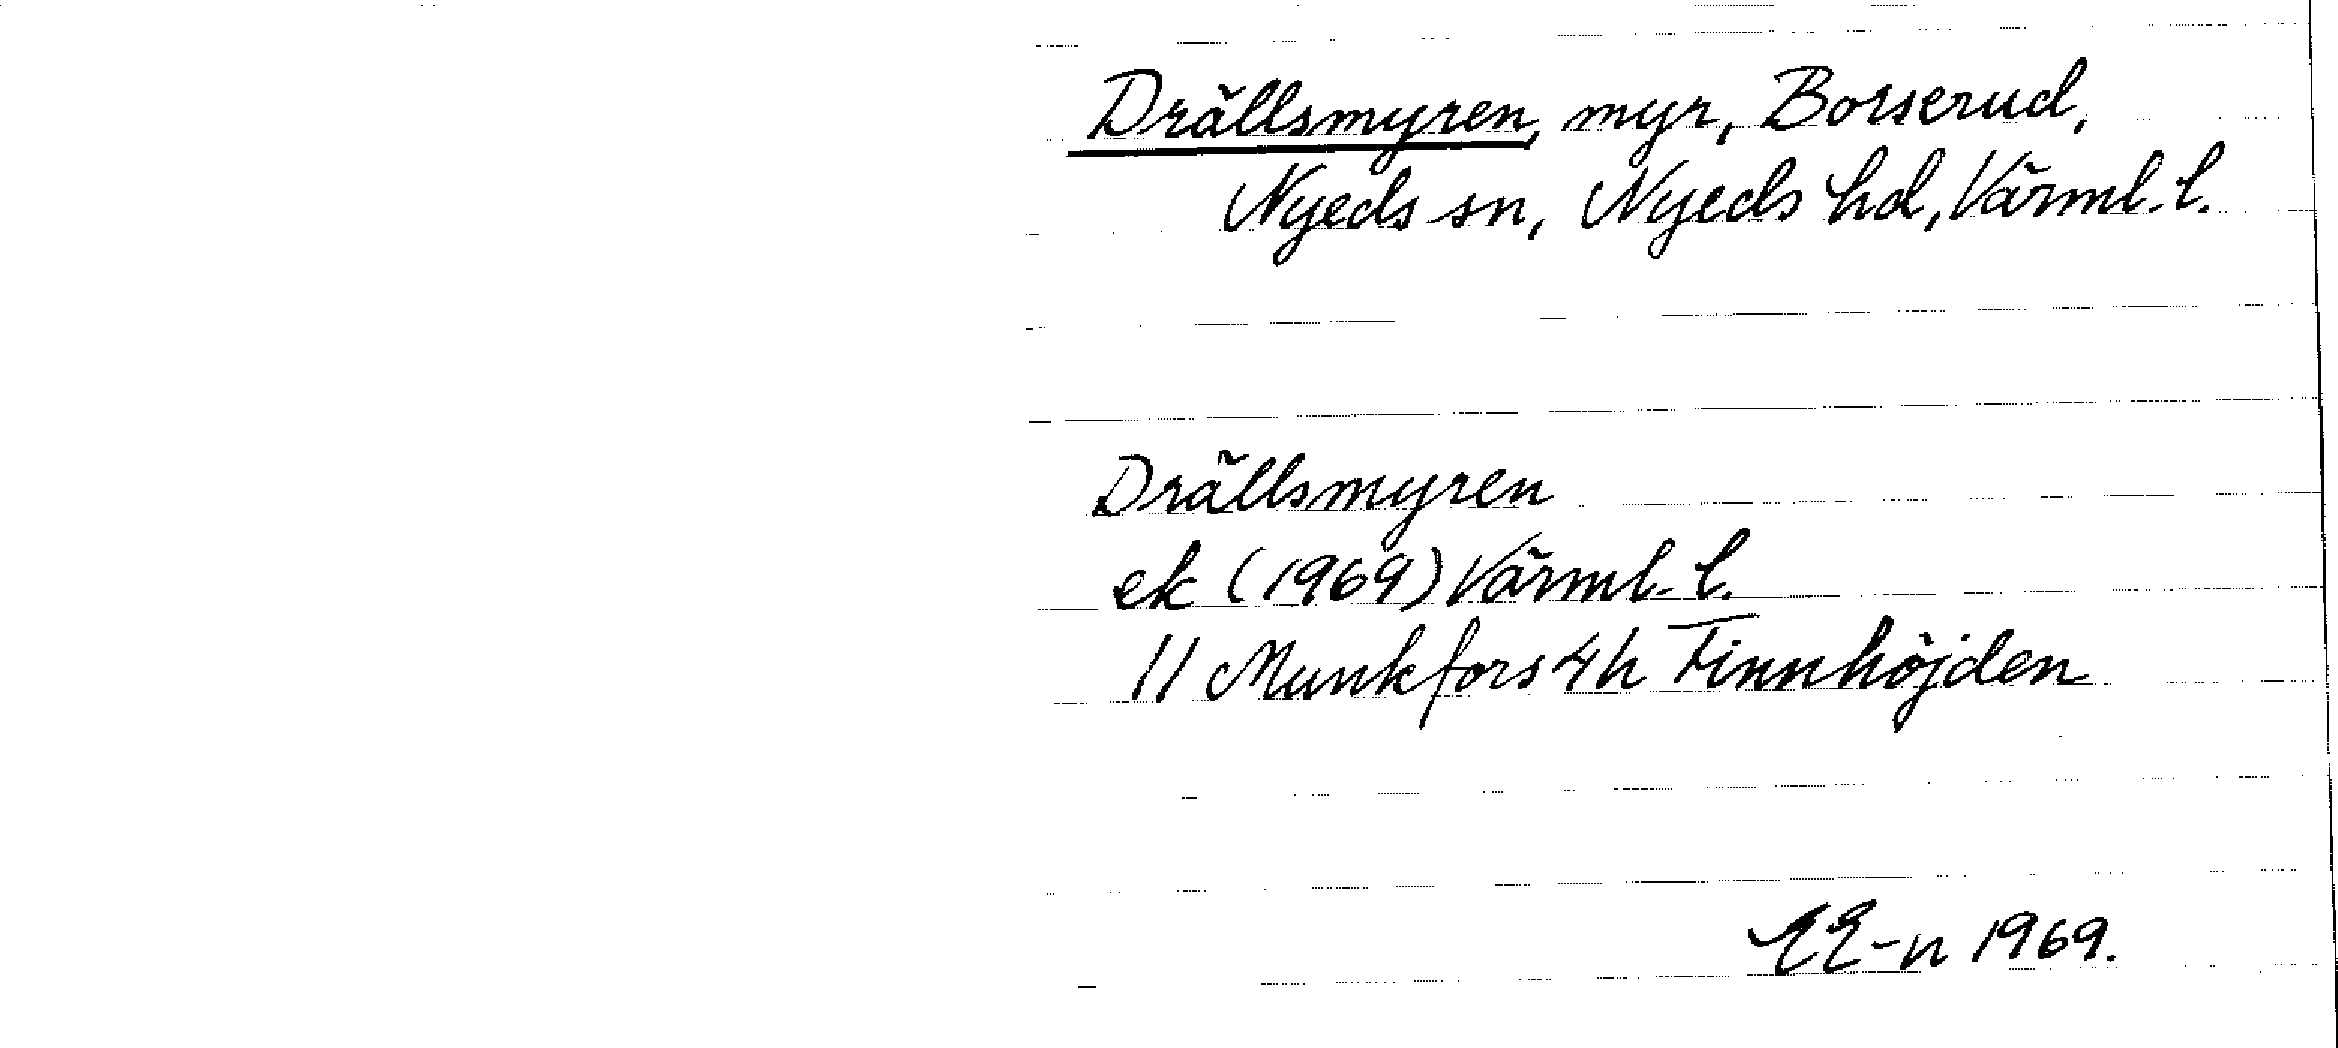 Drällsmyren, myr, Borserud,
Nyeds sn, Nyeds hd, Värml. l.
Drällsmyren
ek (1969) Värml. l.
11 Munkfors 4h Finnhöjden
EE-n 1969.